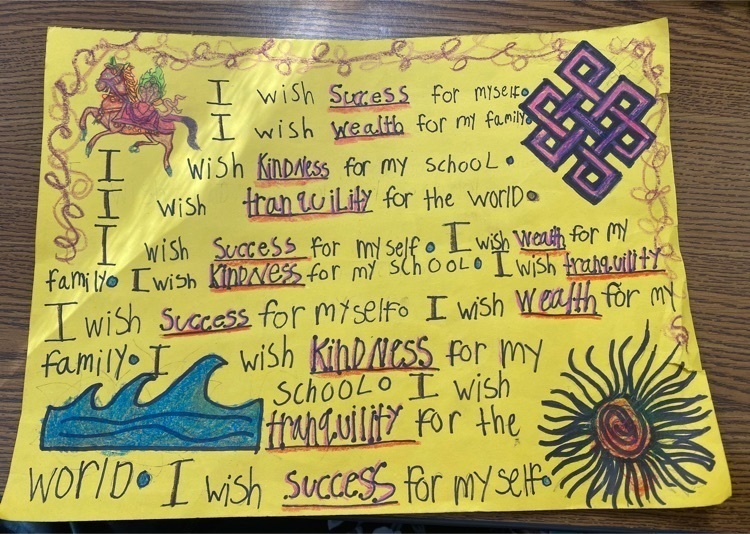 I wish Success for myself.
I wish wealth for my family.
I wish KINDNess for my school.
I wish tranquility for the world.
I wish Success for myself. I wish wealth for my
family. I wish KINDNess for my school. I wish tranquility
I wish Success for myself. I wish wealth for my
family. I wish KINDNess for my
school. I wish
tranquility for the
world. I wish success for myself.